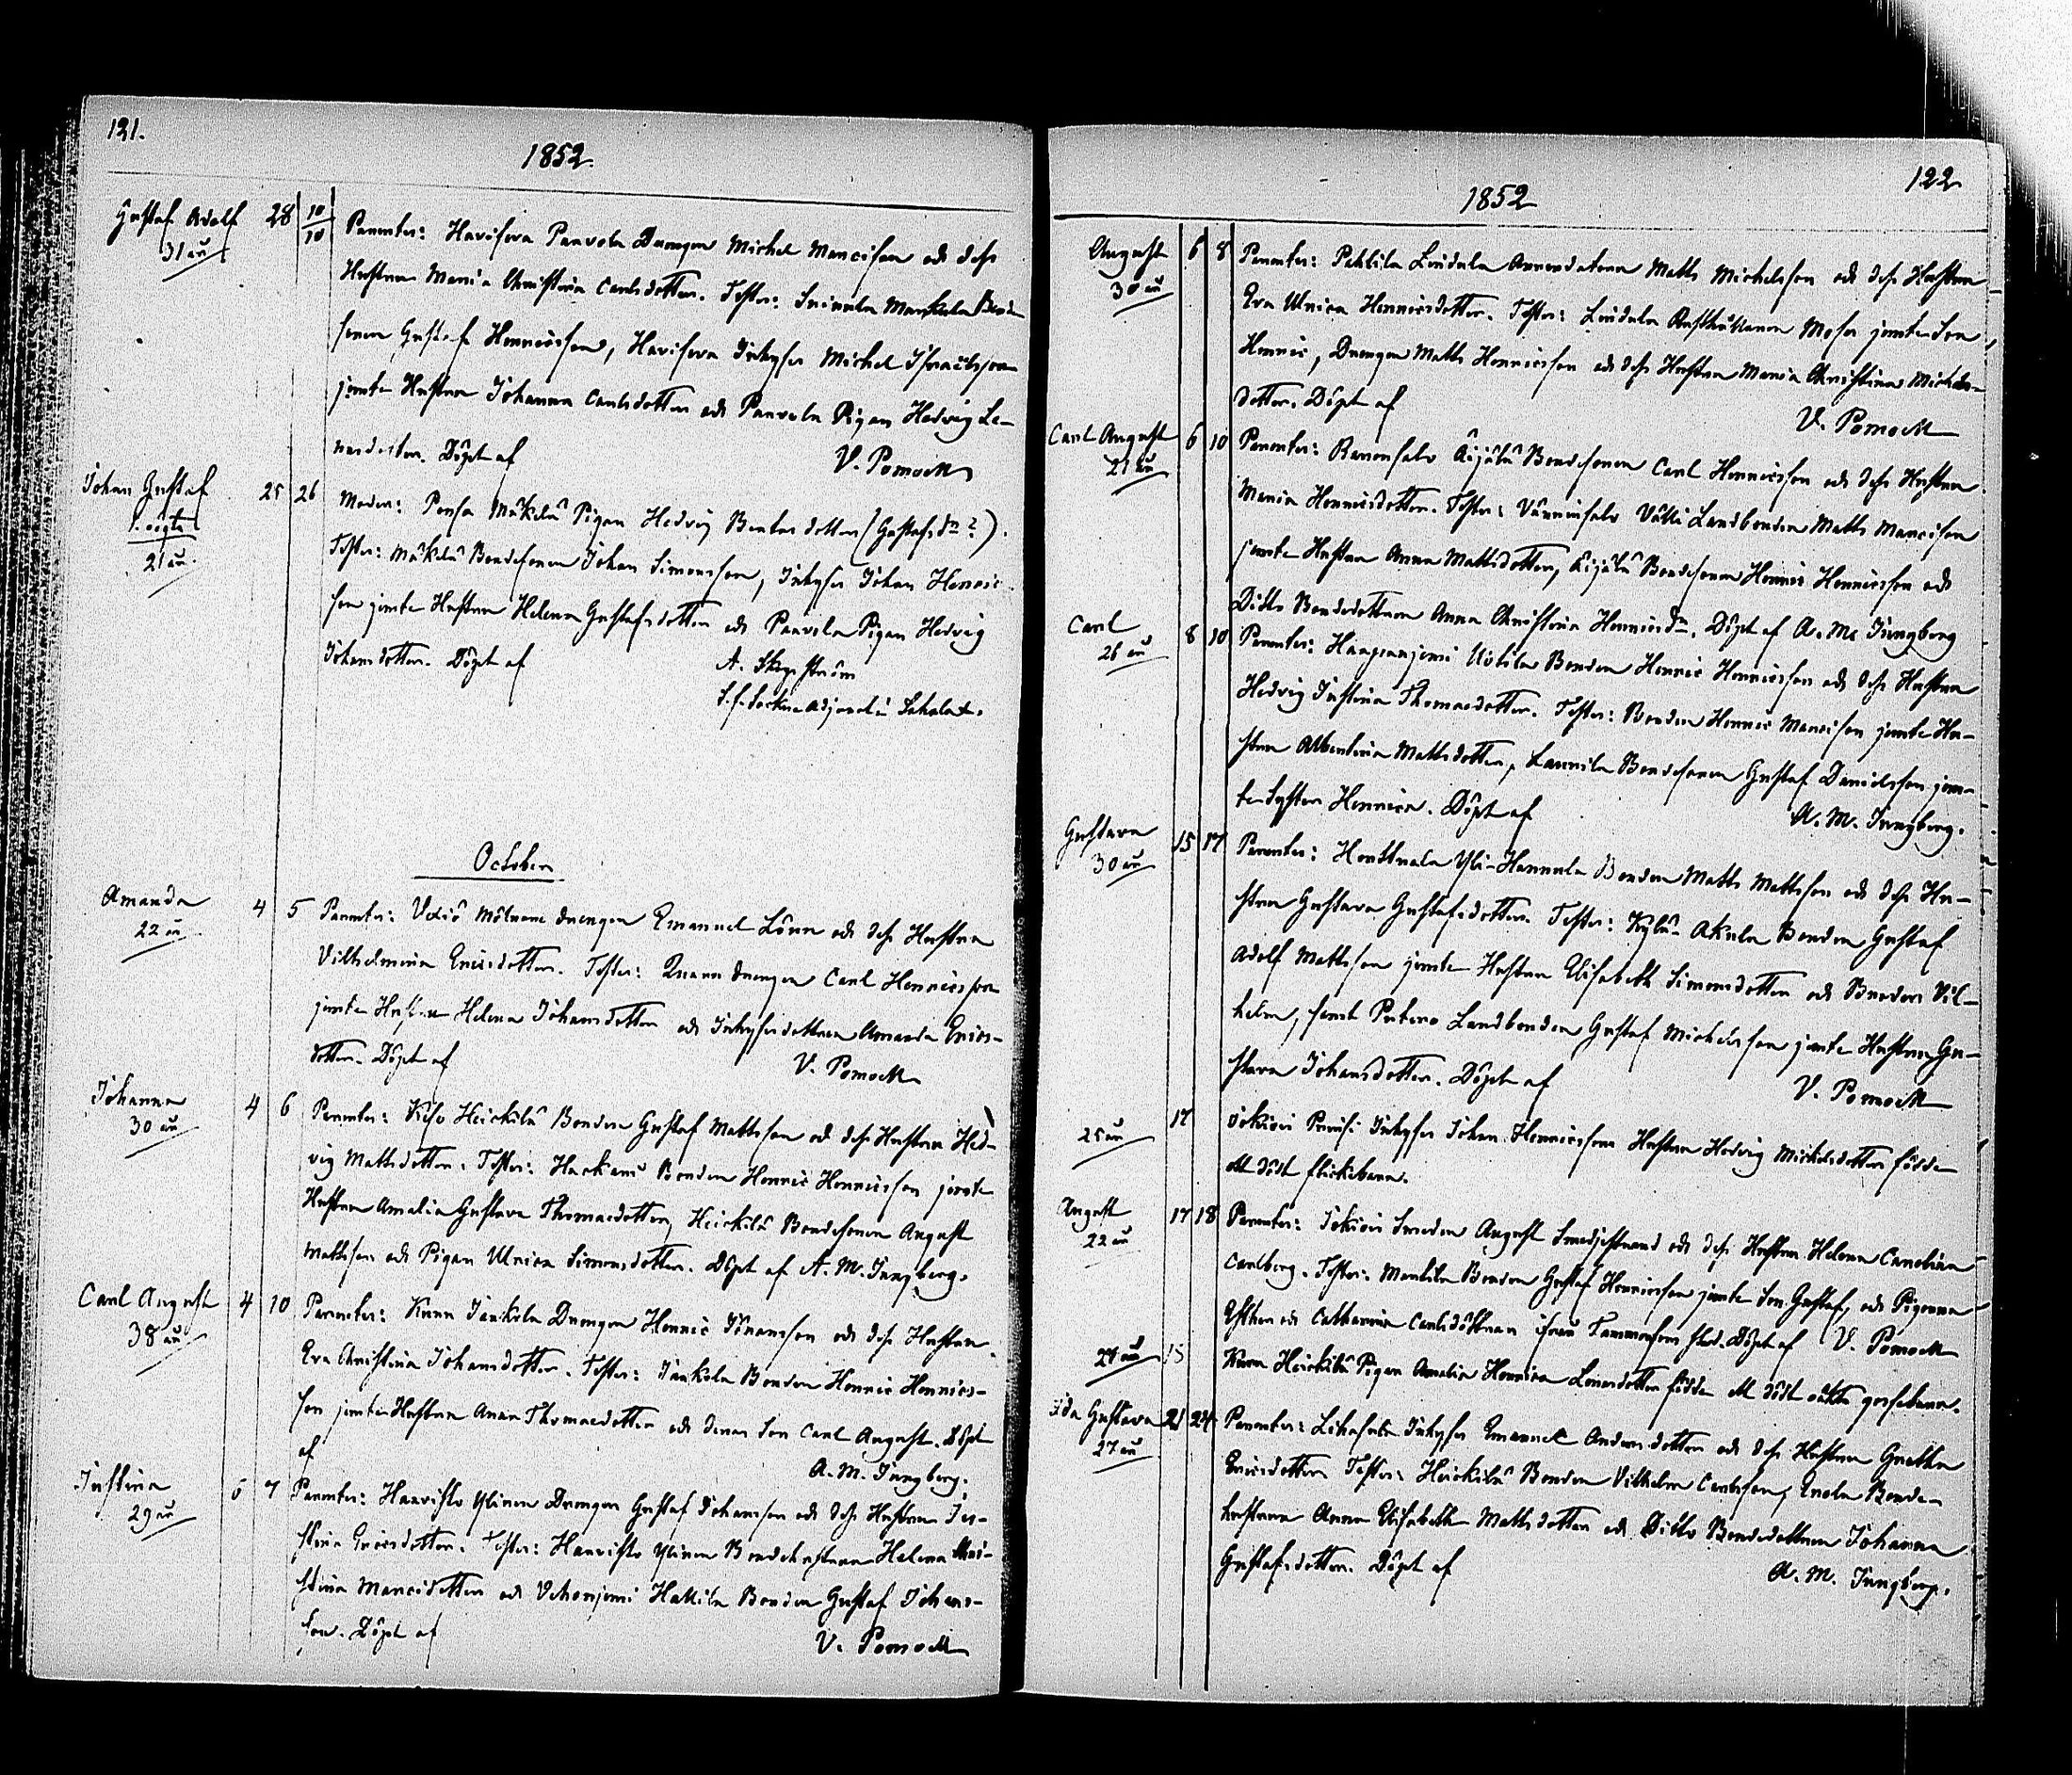 121.
1852.
Gustaf Adolf 28 10/10 Parentes: Harisfora Paavola Drengen Michel Marcisson och dess
31 år Hustru Maria Christina Carlsdotter. Testes: Markula Bonde-
sonen Gustaf Henricsson, Harisfora Inhyses Michel Israelsson
jemte Hustru Johanna Carlsdotter och Paavola Pigan Hedvig Le-
nardsdotter. Döpt af V. Pomoell
Johan Gustaf 25 26 Moder: Mäkelä Pigan Hedvig Bentsdotter (Gustafsdr?).
oägta Testes: Mäkelä Bondesonen Johan Simonsson, Inhyses Johan Henric-
21 år son jemte Hustru Helena Gustafsdotter och Paavola Pigan Hedvig
Johansdotter. Döpt af A.
Sockne Adjunct i
October
Amanda 4 5 Parentes: Mölnare drengen Emanuel Lönn och dess Hustru
22 år Vilhelmina Ericsdotter. Testes: Qvarn drengen Carl Henricsson
jemte Hustru Helena Johansdotter och Inhysesdottren Amanda Erics-
dotter. Döpt af V. Pomoell
Johanna 4 6 Parentes: Heickilä Bonden Gustaf Mattsson och dess Hustru Hed-
30 år vig Mattsdotter. Testes: Bonden Henric Henricsson jemte
Hustru Amalia Gustava Thomasdotter, Heickilä Bondesonen August
Mattsson och Pigan Ulrica Simonsdotter. Döpt af A. M. Ljungberg.
Carl August 4 10 Parentes: Jankola Drengen Henric och dess Hustru
38 år Eva Christina Johansdotter. Testes: Jankola Bonden Henric Henrics-
son jemte Hustru Anna Thomasdotter och deras Son Carl August. Döpt
af A. M. Ljungberg.
Justina 5 7 Parentes: Haavisto Ylinen Drengen Gustaf Johansson och dess Hustru Ju-
29 år stina Ericsdotter. Testes: Haavisto Ylinen Bondehustrun Helena Chri-
stina Marcidotter och Vehonjemi Hattila Bonden Gustaf Johans-
son. Döpt af V. Pomoell
122
1852
August 6 8 Parentes: Lindula Arrendatorn Matts Michelsson och dess Hustru
30 år Eva Ulrica Henricsdotter. Testes: Lindula Rusthållaren Moses jemte Son
Henric, Drengen Matts Henricsson och dess Hustru Maria Christina Michels-
dotter. Döpt af V. Pomoell
Carl August 6 10 Parentes: Äijälä Bondesonen Carl Henricsson och dess Hustru
21 år Maria Henricsdotter. Testes: Landbonden Matts Marcisson
jemte Hustru Anna Mattsdotter, Äijälä Bondesonen Henric Henricsson och
Ditto Bondedottren Anna Christina Henricsdr. Döpt af A. M. Ljungberg
Carl 8 10 Parentes: Haapaanjemi Uotila Bonden Henric Henricsson och dess Hustru
26 år Hedvig Justina Thomasdotter. Testes: Bonden Henric Marcisson jemte Hu-
stru Albertina Mattsdotter, Laurila Bondesonen Gustaf Danielsson jem-
te Syster Henrica. Döpt af A. M. Ljungberg.
Gustava 15 17 Parentes: Horttuala Yli-Hannula Bonden Matts Mattsson och dess Hu-
30 år stru Gustava Gustafsdotter. Testes: Kylä-Akula Bonden Gustaf
Adolf Mattsson jemte Hustru Elisabeth Simonsdotter och Brodren Vil-
helm, samt Landbonden Gustaf Michelsson jemte Hustru Gu-
stava Johansdotter. Döpt af V. Pomoell
25 år 17 Jokiois Inhyses Johan Henricssons Hustru Hedvig Michelsdotter födde
ett dödt flickebarn.
August 17 18 Parentes: Jokiois Smeden August och dess Hustru Helena Carolina
22 år Carlberg. Testes: Mantila Bonden Gustaf Henricsson jemte Son Gustaf, och Pigorna
Esther och Catharina Carlsdöttrar ifrån Tammerfors stad. Döpt af V. Pomoell
24 år 15 Heickilä Pigan Amalia Henrica födde ett dödt oäkta gossebarn.
Ida Gustava 21 24 Parentes: Inhyses Emanuel Andersdotter och dess Hustru Greta
27 år Ericsdotter Testes: Heickilä Bonden Vilhelm Carlsson, Bonde-
hustrun Anna Elisabeth Mattsdotter och Ditto Bondedottren Johanna
Gustafsdotter. Döpt af A. M. Ljungberg.